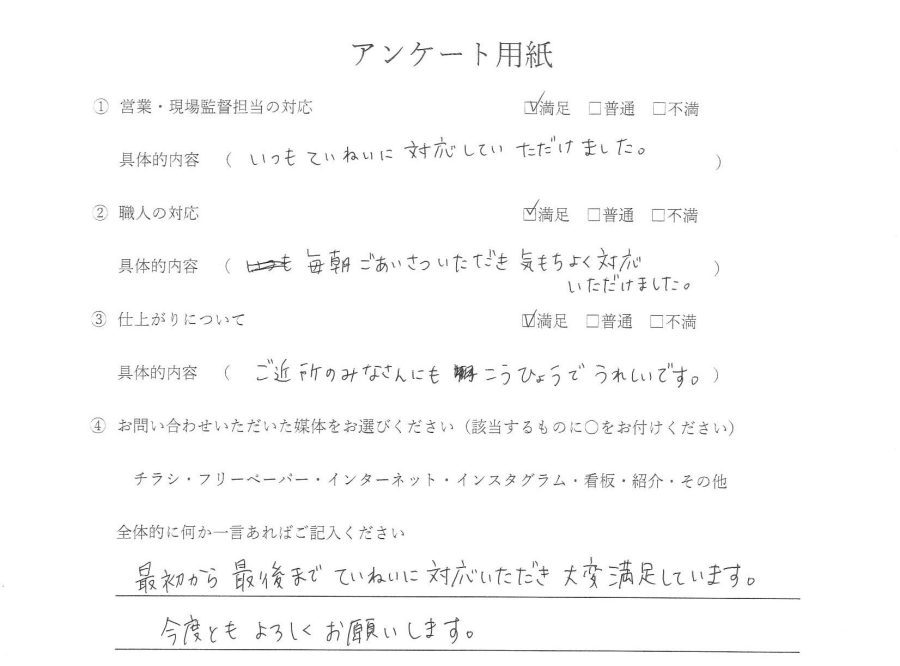 アンケート用紙
① 営業・現場監督担当の対応 ☑満足 □普通 □不満
具体的内容 ( いつもていねいに対応していただけました。 )
② 職人の対応 ☑満足 □普通 □不満
具体的内容 ( 毎朝ごあいさついただき気もちよく対応 )
いただけました。
③ 仕上がりについて ☑満足 □普通 □不満
具体的内容 ( ご近所のみなさんにもこうひょうでうれしいです。 )
④ お問い合わせいただいた媒体をお選びください（該当するものに〇をお付けください）
チラシ・フリーペーパー・インターネット・インスタグラム・看板・紹介・その他
全体的に何か一言あればご記入ください
最初から最後までていねいに対応いただき大変満足しています。
今度ともよろしくお願いします。